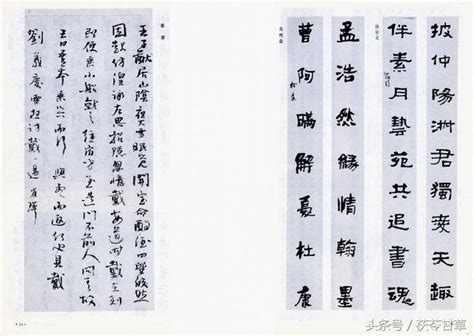 仲陽洲君獨天趣
伴素月藝苑共追書魂
孟浩然緣情翰墨
曹阿瞞解憂杜康
王子猷居山陰夜大雪眠覺開室命酌酒四望皎然
因起仿偟詠左思招隱忽憶戴安道時戴在剡
即便乘小船就之經宿方至造門不前人問其故
王曰吾本乘興而行興盡而返何必見戴
劉義慶雪夜訪戴
头条号 / 茯苓甘草